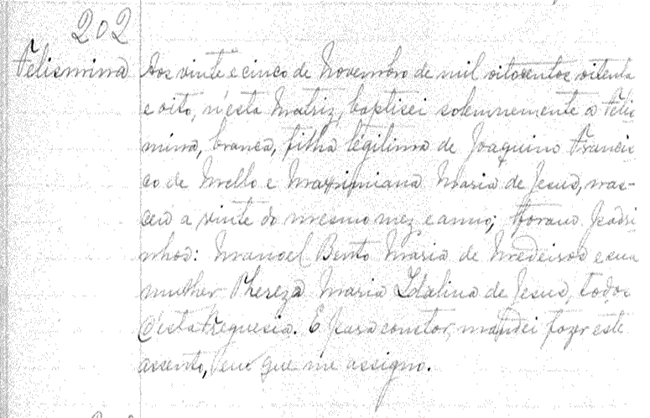 202
Felismina Aos vinte e cinco de Novembro de mil oitocentos oitenta
e oito, n'esta Matriz, baptisei solemnemente a Felis
mina, branca, filha legitima de Joaquim Francis
co de Mello e Maximiana Maria de Jesus, nas-
ceu a vinte do mesmo mez e anno; foram Padri
nhos: Manoel Bento Maria de Medeiros e sua
mulher Thereza Maria Idalina de Jesus, todos
d'esta Freguesia. E para constar, mandei fazer este
assento, em que me assigno.